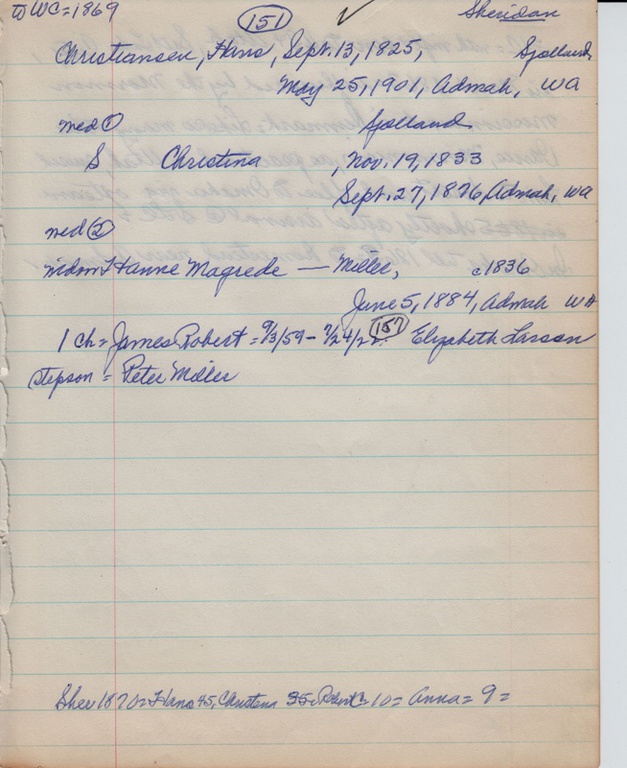 to WC=1869 (151) ✓ Sheridan
Christiansen, Hans, Sept. 13, 1825, Sjolland
May 25, 1901, Admah, WA
med ① Sjolland
S Christina , Nov. 19, 1833
Sept. 27, 1876, Admah, WA
med ②
widow Hanne Magrede — Miller, c1836
June 5, 1884, Admah WA
1 ch = James Robert = 9/3/59 - 7/24/22 (157) Elizabeth Larson
stepson = Peter Miller
Sher 1870 = Hans 45, Christena 35 = Robert 10 = Anna = 9 =